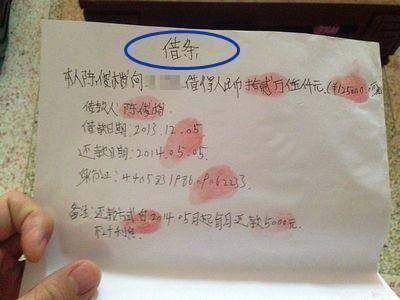 借条
本人陈俊楷向 借得人民币拾贰万伍仟元.(¥125000.
借款人: 陈俊楷
借款日期: 2013.12.05
还款日期: 2014.05.05.
身份证: 440583198609062233.
备注: 还款方式自2014.05月起每月还款5000元.
不计利息.